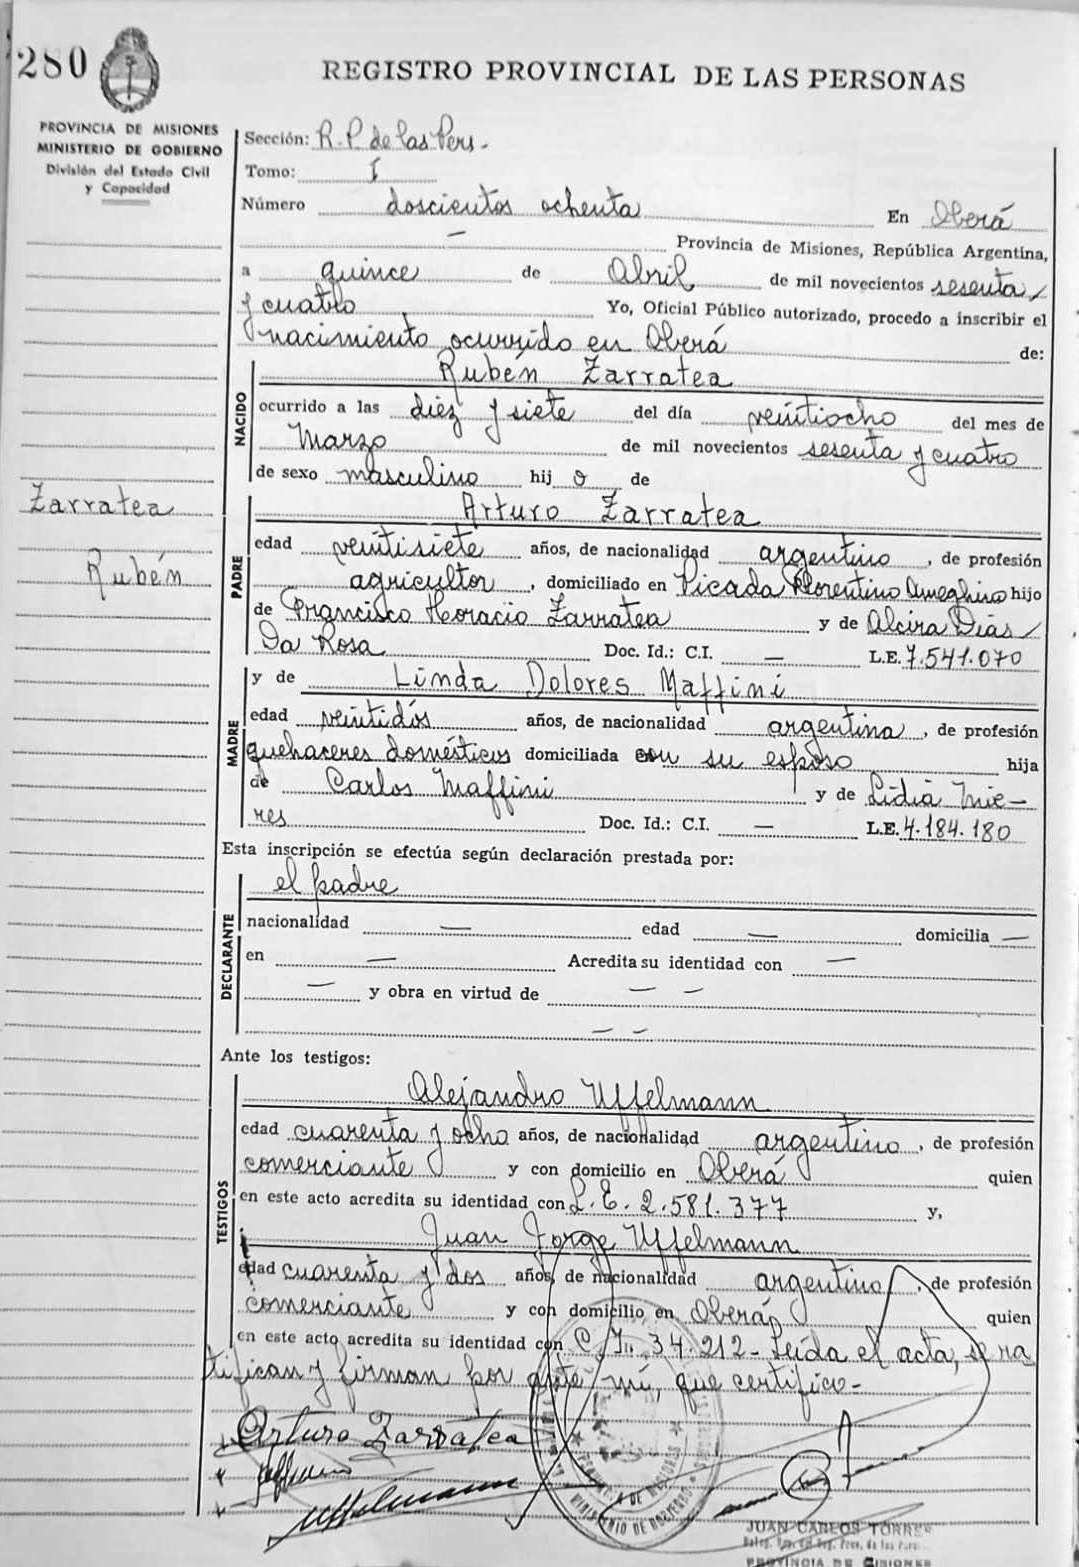 280
REGISTRO PROVINCIAL DE LAS PERSONAS
PROVINCIA DE MISIONES
MINISTERIO DE GOBIERNO
División del Estado Civil
y Capacidad
Sección: R.P. de las Pers.
Tomo: I
Número doscientos ochenta En Oberá
— Provincia de Misiones, República Argentina,
a quince de Abril de mil novecientos sesenta
y cuatro Yo, Oficial Público autorizado, procedo a inscribir el
nacimiento ocurrido en Oberá de:
Rubén Zarratea
NACIDO
ocurrido a las diez y siete del día veintiocho del mes de
Marzo de mil novecientos sesenta y cuatro
de sexo masculino hij o de
Zarratea
Rubén
Arturo Zarratea
PADRE
edad veintisiete años, de nacionalidad argentino, de profesión
agricultor, domiciliado en Picada Florentino Ameghino hijo
de Francisco Horacio Zarratea y de Alcira Dias
Da Rosa Doc. Id.: C.I. — L.E. 7.541.070
y de Linda Dolores Maffini
MADRE
edad veintidós años, de nacionalidad argentina, de profesión
quehaceres domésticos domiciliada con su esposo hija
de Carlos Maffini y de Lidia Mie-
res Doc. Id.: C.I. — L.E. 4.184.180
Esta inscripción se efectúa según declaración prestada por:
el padre
DECLARANTE
nacionalidad — edad — domicilia —
en — Acredita su identidad con —
— y obra en virtud de — —
— —
Ante los testigos:
Alejandro Uffelmann
TESTIGOS
edad cuarenta y ocho años, de nacionalidad argentino, de profesión
comerciante y con domicilio en Oberá quien
en este acto acredita su identidad con L.E. 2.581.377 y,
Juan Jorge Uffelmann
edad cuarenta y dos años, de nacionalidad argentino, de profesión
comerciante y con domicilio en Oberá quien
en este acto acredita su identidad con C.I. 34.212- Leída el acta, se ra
tifican y firman por ante mí, que certifico-
Arturo Zarratea
Uffelmann
MINISTERIO DE GOBIERNO
JUAN CARLOS TORRES
PROVINCIA DE MISIONES